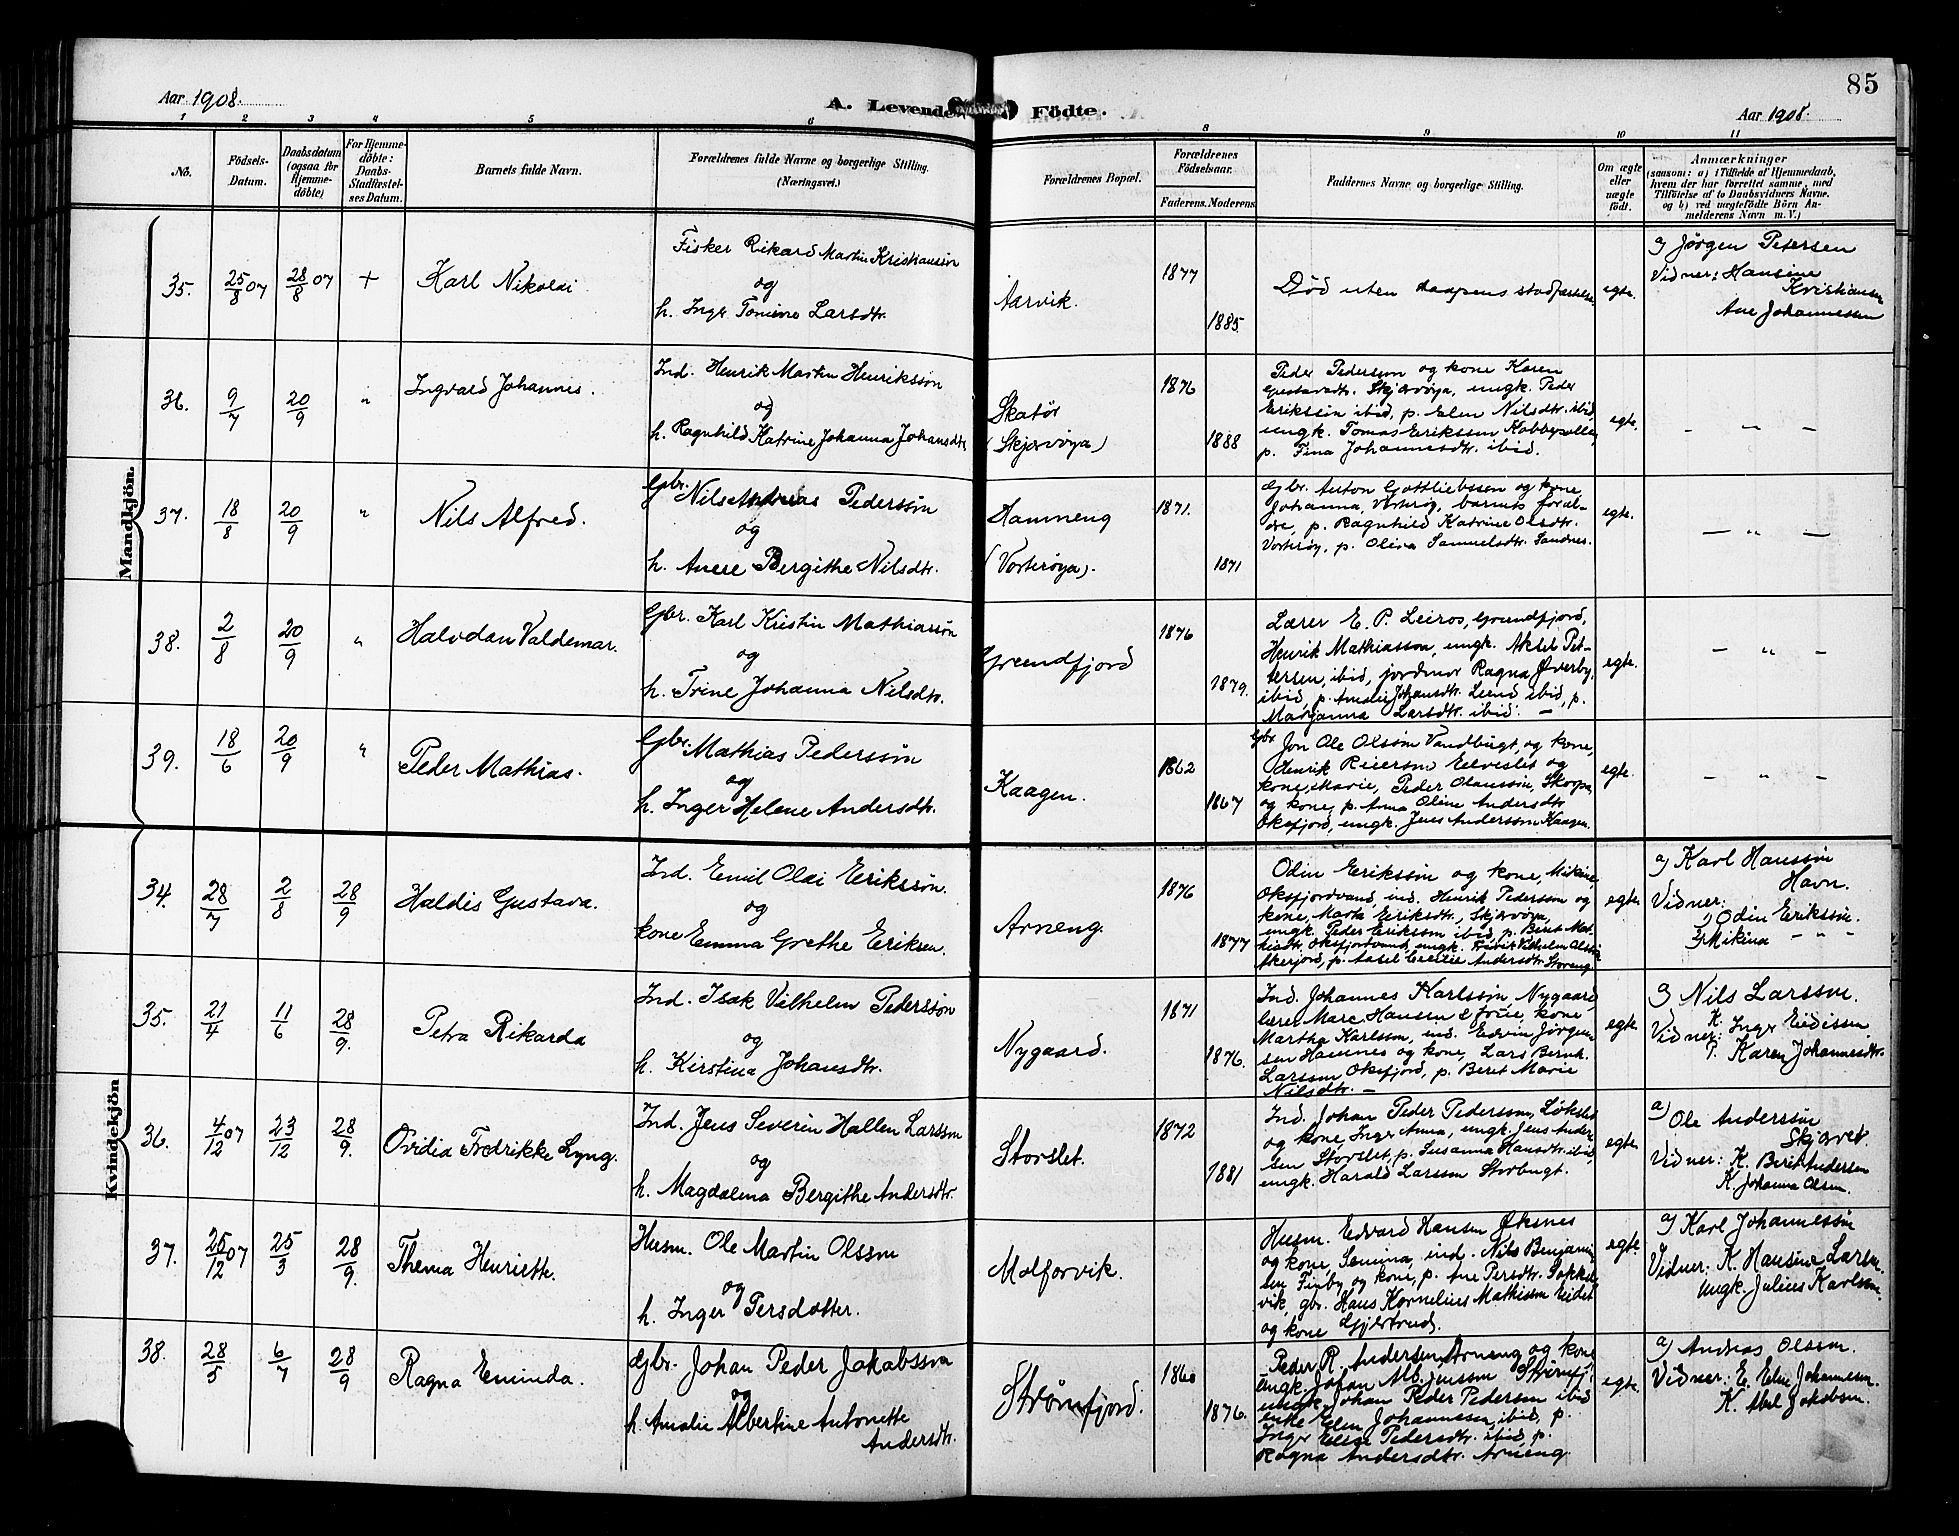 85
Aar 1908.
A. Levende Födte.
Aar 1908.
1 2 3 4 5 6 8 9 10 11
No.
Födsels-Datum.
Daabsdatum (ogsaa for Hjemmedöbte)
For Hjemmedöbte: Daabs-Stadfæstelses Datum.
Barnets fulde Navn.
Forældrenes fulde Navne og borgerlige Stilling.
(Næringsvei.)
Forældrenes Bopæl.
Forældrenes Födselsaar.
Faderens. Moderens.
Faddernes Navne og borgerlige Stilling.
Om ægte eller uægte födt.
Anmærkninger
(saasom: a) i Tilfælde af Hjemmedaab,
hvem der har forrettet samme, med
Tilföielse af to Daabsvidners Navne.
og b) ved uægtefödte Börn Anmelderens Navn m. V.)
Mandkjön.
35. 25/8 07 28/8 07 + Karl Nikolai
Fisker Rikard Martin Kristiansøn
og
h. Inger Tomine Larsdtr.
Aarvik.
1877
1885.
Død uten daapens stadfæstelse.
egte.
a) Jørgen Petersen
Vidner: Hansine
Kristiansen
Ane Johannessen
36. 9/7 20/9 " Ingvald Johannes.
Ind. Henrik Martin Henriksøn
og
h. Ragnhild Katrine Johanna Johansdtr.
Skatør
(Skjærvøya)
1876
1888
Peder Pederssøn og kone Karen
Gustavadtr. Skjærvøya, ungk. Peder
Erikssøn ibid, p. Elen Nilsdtr. ibid,
ungk. Tomas Erikssen Kobbepollen,
p. Fina Johannesdtr. ibid.
egte.
– " –
37. 18/8 20/9 " Nils Alfred.
Gbr. Nils Andreas Pederssøn
og
h. Anere Bergithe Nilsdtr.
Hamneng
(Vorterøya).
1871.
1871
Gbr. Anton Gottliebssen og kone
Johanna, Vorterøy, barnets foræl-
dre, p. Ragnhild Katrine Olsdtr.
Vorterøy, p. Oliva Samuelsdtr. Sandnes.
egte.
– " –
38. 2/8 20/9 " Halvdan Valdemar.
Gbr. Karl Kristin Mathiassøn
og
h. Trine Johanna Nilsdtr.
Grundfjord
1876
1879.
Lærer E. P. Leiros, Grundfjord,
Henrik Mathiasson, ungk. Aksel Pet-
tersen, ibid, jordmor Ragna Øverby
ibid, p. Amalie Johansdtr. Lund ibid, p.
Marjanna Larsdtr. ibid. –
egte.
– " –
39. 18/6 20/9 " Peder Mathias.
Gbr. Mathias Pederssøn
og
h. Inger Helene Andersdtr.
Kaagen.
1862
1867
Gbr. Jon Ole Olssøn Vandbugt, og kone,
Henrik Reierson Eelveslet og
kone, Marie, Peder Olaussøn, Skorpa
og kone, p. Anna Oline Andersdtr
Oksfjord, ungk. Jens Anderssøn Kaagen.
egte.
– " –
Kvindekjön
34. 28/7 2/8 28/9 Haldis Gustava.
Ind. Emil Olai Erikssøn.
og
kone Emma Grethe Eriksen.
Arneng.
1876
1877
Odin Erikssøn og kone, Mikine,
Oksfjordvand, ind. Henrik Pederssøn og
kone, Marta Eriksdtr., Skjærvøya,
ungk. Peder Erikssøn ibid, p. Beret Mat-
hisdtr. Oksfjordvand, ungk. Fredrik Vilhelm Olssøn
p. Aasel Cecilie Andersdtr. Storeng.
egte.
a) Karl Hanssøn
Havn.
Vidner:
1) Odin Erikssøn.
2) Mikina – " – "
35. 21/4 11/6 28/9. Petra Rikarda
Ind. Isak Vilhelm Pederssøn
og
h. Kirstina Johansdtr.
Nygaard.
1871
1876.
Ind. Johannes Karlssøn, Nygaard,
lærer Marc Hansen & frue, kone
Martha Karlsson, ind. Edvin Jørgen-
sen Hamnes og kone, Lars Bernh.
Larsson Oksfjord, p. Beret Marie
Nilsdtr. –
egte.
a) Nils Larssøn.
Vidner: K. Inger Eidissen
P. Karen Johannesdtr.
36. 4/12 07 23/12 28/9. Ovidia Fredrikke Lyng.
Ind. Jens Severin Hallen Larssøn
og
h. Magdalena Bergithe Andersdtr.
Storslet.
1872
1881
Ind. Johan Peder Pedersson, Løkslet
og kone, Inger Anna, ungk. Jens Ander-
sen Storslet, p. Susanna Hansdtr. ibid,
ungk. Harald Larssøn Storbugt.
egte.
a)
Ole Anderssøn
Skjærvø.
Vidner: K. Beret Andersen
K. Johanna Olsen.
37. 25/12 07 25/3 28/9. Thema Henriette.
Husm. Ole Martin Olssøn
og
h. Inger Persdotter.
Molforvik.
Husm. Edvard Hansen Øksnes
og kone, Semina, ind. Nils Benjamin-
sen Finby og kone, p. Ane Persdtr. Sokkel-
vik, gbr. Hans Kornelius Mathisen Eidet
og kone Gjertrud.
egte.
a) Karl Johannessøn
Vidner. K. Hansine Larsen.
Ungk. Julius Karlssøn.
38. 28/5 6/7 28/9 Ragna Eminda.
Gbr. Johan Peder Jakobssøn
og
h. Amalie Albertine Antonette
Andersdtr.
Strømfjord.
1860
1876.
Peder R. Andersen Arneng og kone,
ungk. Johan Alb. Jenssøn Strømfj.
ungk. Johan Peder Pedersen ibid
enke Elen Johannessen, ibid, p.
Inger Elise Pedersdtr. ibid, p.
Ragna Andersdtr. Arneng.
egte.
a) Andreas Olssøn.
Vidner: E. Elen Johannessen.
K. Abel Jakobsen.